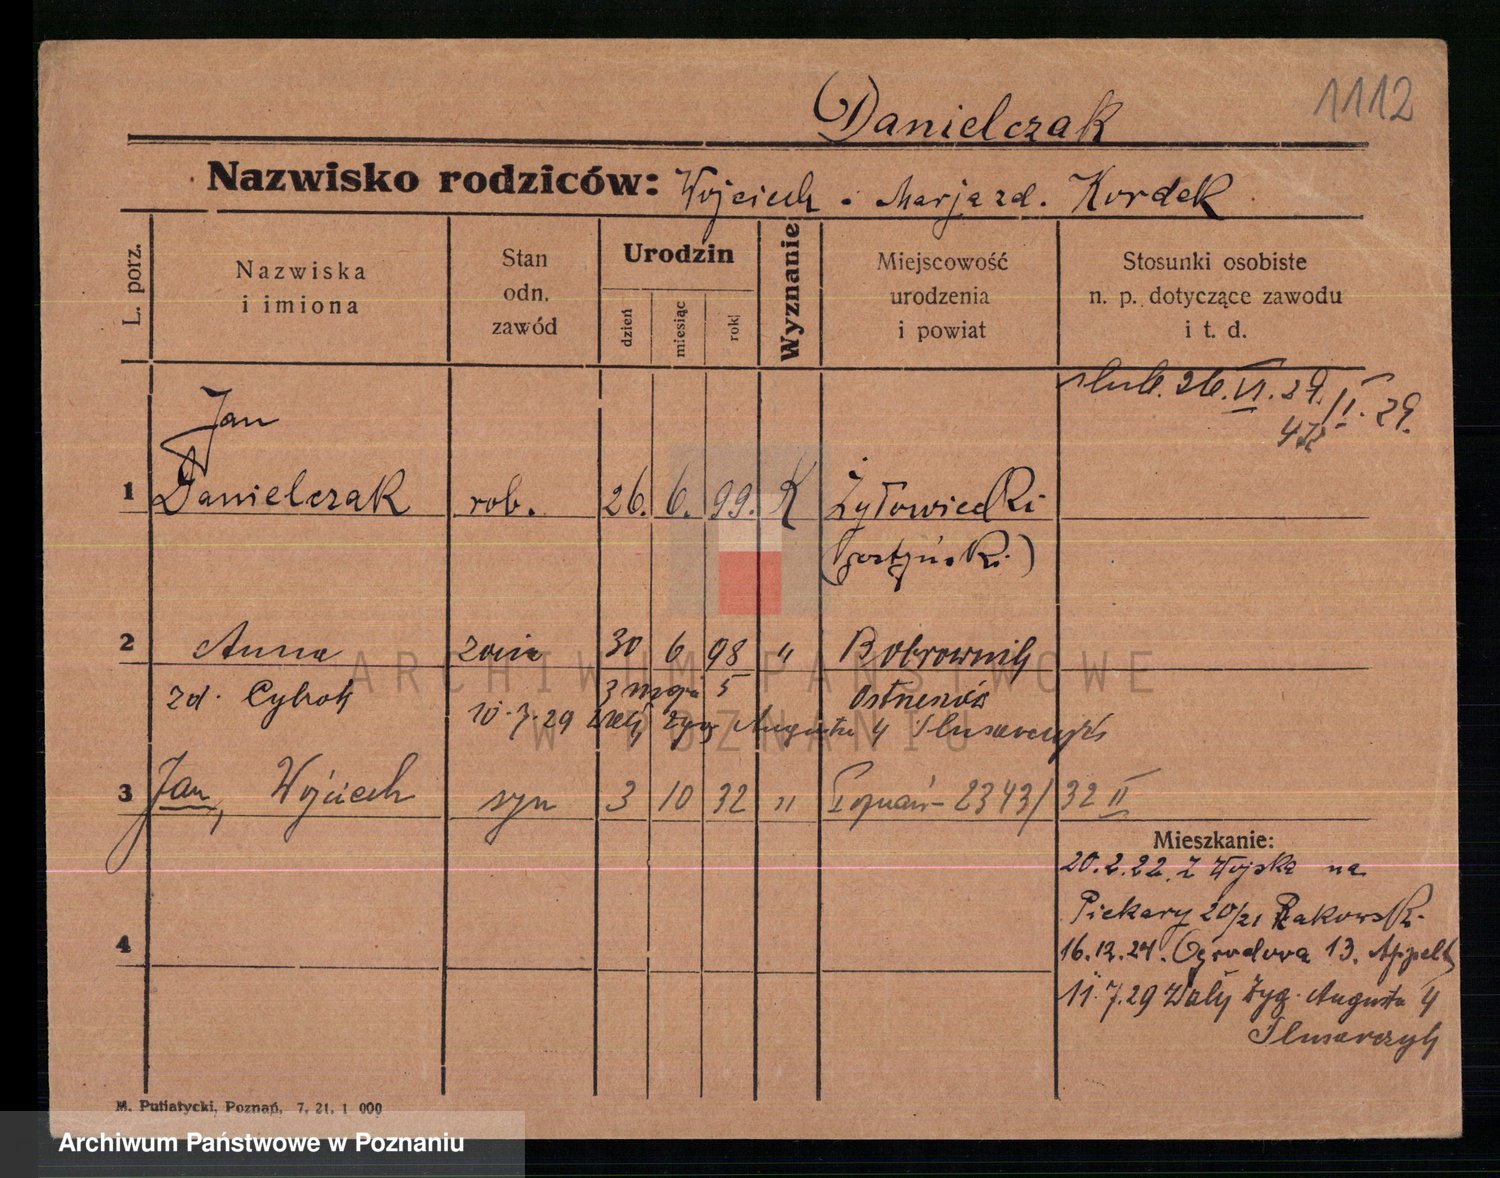 1112
Danielczak
Nazwisko rodziców: Wojciech i Marja zd. Kordek
L. porz.
Nazwiska
i imiona
Stan
odn.
zawód
Urodzin
dzień
miesiąc
rok
Wyznanie
Miejscowość
urodzenia
i powiat
Stosunki osobiste
n. p. dotyczące zawodu
i t. d.
ślub. 26.VI.29.
472/II. 29.
Jan
1 Danielczak rob. 26. 6. 99. K Żyłowiecki
(gostyński.)
2 Anna żona 30 6 98 " Bobrowniki
zd. Cybok 5 Ostrzeszów
10.7.29 Zyg Augusta 4 Slusarczyk
3 Jan, Wojciech syn 3 10 32 " Poznań - 2343/32 II
Mieszkanie:
20.2.22. z Wojska na
Piekary 20/21 Rakowsk.
4
16.12.24. Ogrodowa 13. Appelt
11.7.29 Wały Zyg. Augusta 4
Slusarczyk
M. Putiatycki, Poznań, 7. 21. 1 000
ARCHIWUM PAŃSTWOWE
W POZNANIU
Archiwum Państwowe w Poznaniu